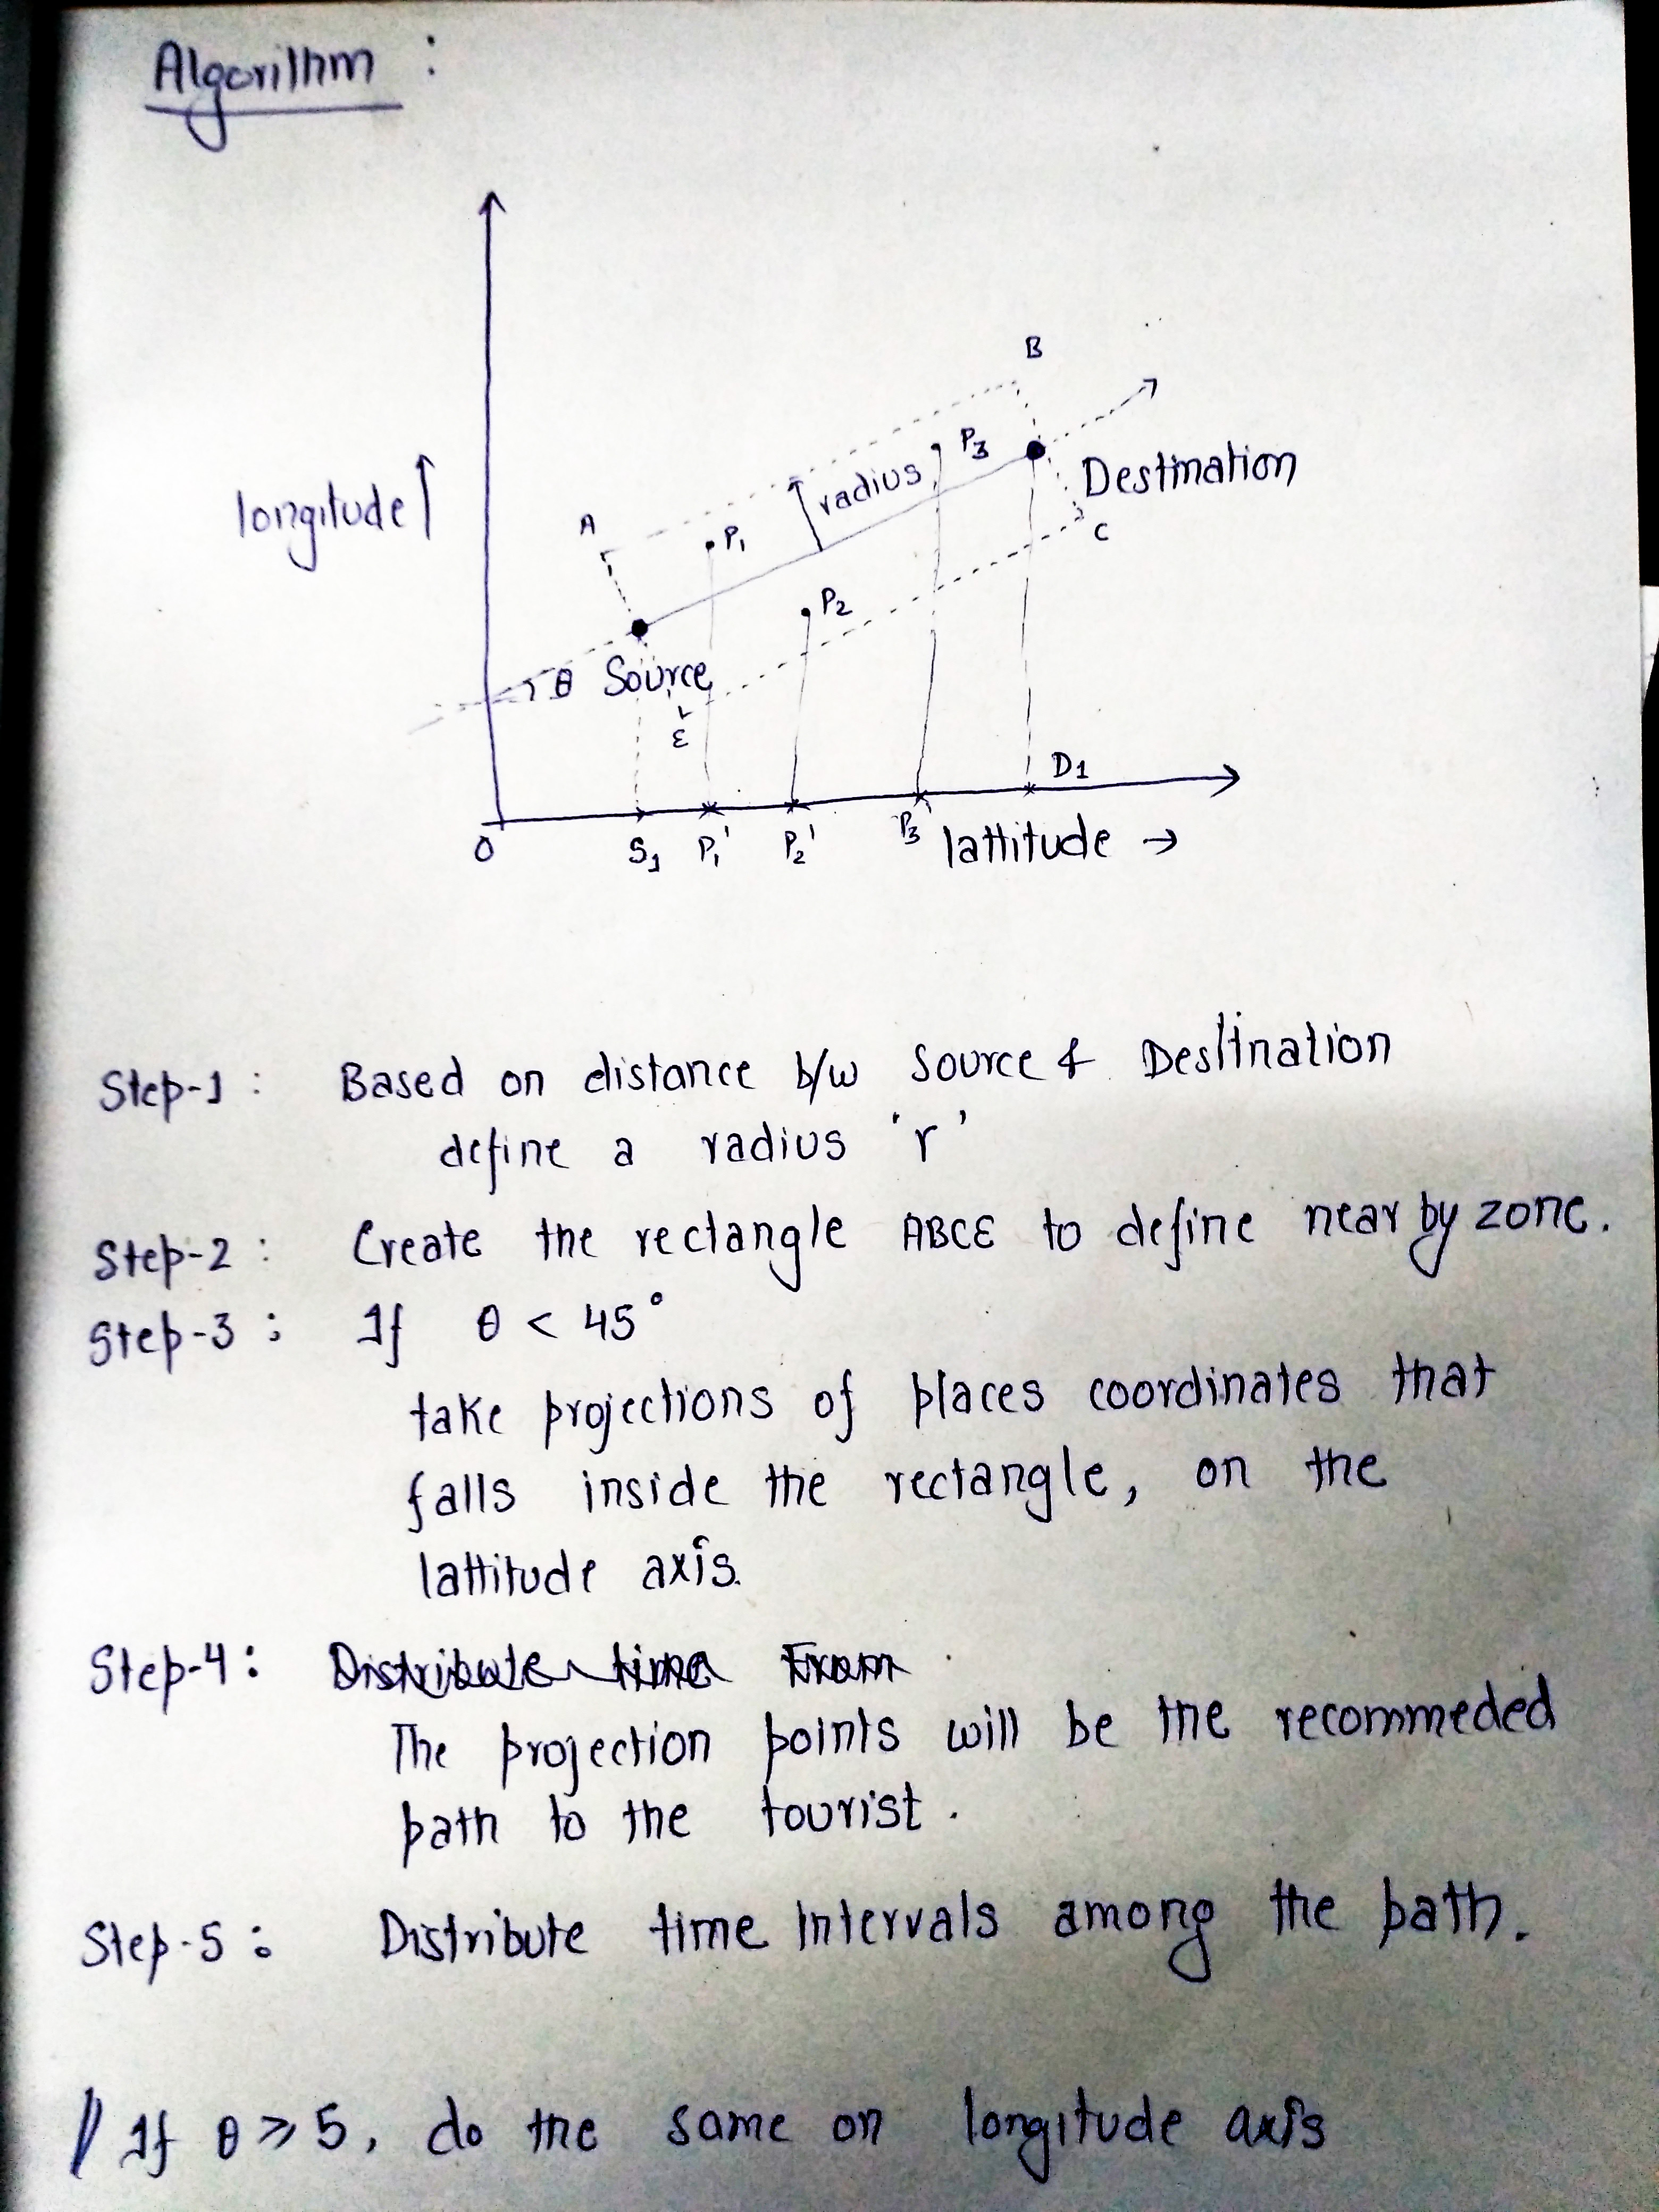 Algorithm :
B
P3
Destination
radius
longitude
A
P1
C
P2
θ Source
ε
D1
O
S1 P1' P2' P3' lattitude →
Step-1 : Based on distance b/w Source & Destination
define a radius 'r'
Step-2 : Create the rectangle ABCE to define near by zone.
Step-3 : If θ < 45°
take projections of places coordinates that
falls inside the rectangle, on the
lattitude axis.
Step-4 : Distribute time From
The projection points will be the recommeded
path to the tourist.
Step-5 : Distribute time intervals among the path.
// If θ ⩾ 5, do the same on longitude axis